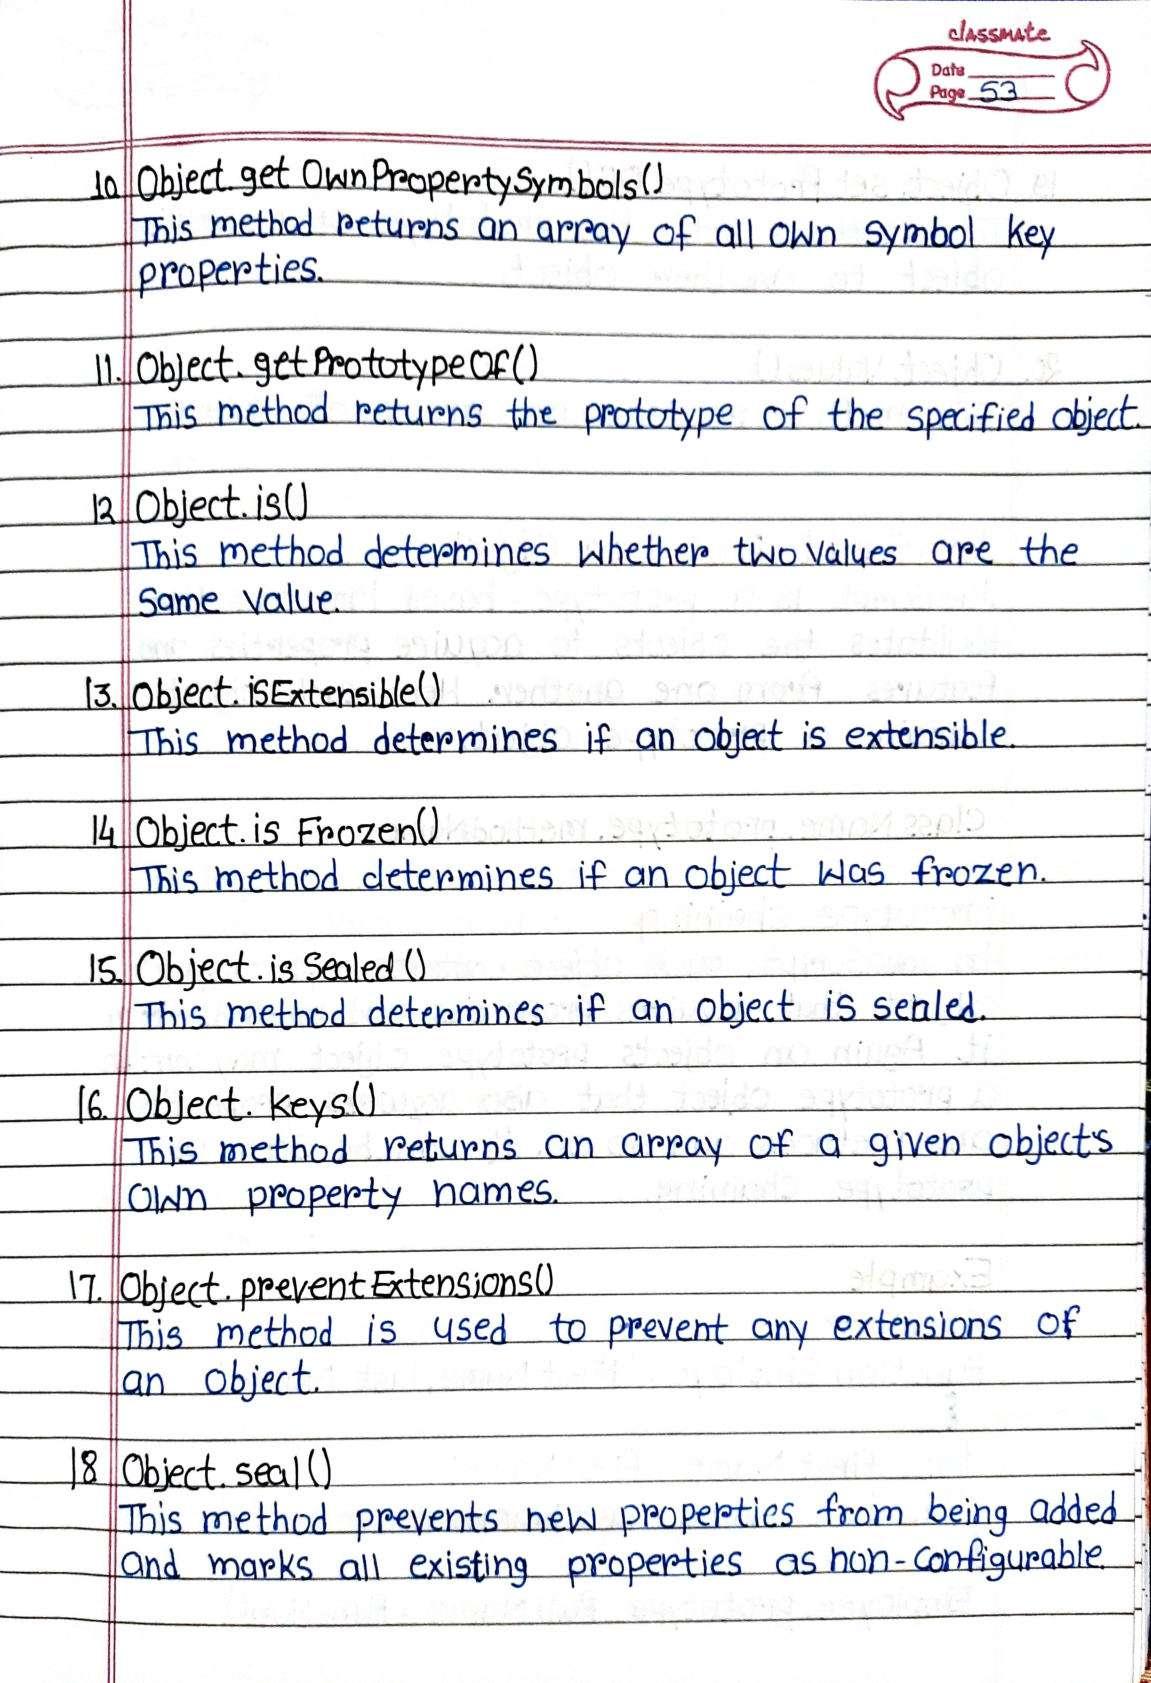 classmate
Date
Page 53
10. Object.getOwnPropertySymbols()
This method returns an array of all own symbol key
properties.
11. Object.getPrototypeOf()
This method returns the prototype of the specified object.
12. Object.is()
This method determines whether two values are the
same value.
13. Object.isExtensible()
This method determines if an object is extensible.
14 Object.is Frozen()
This method determines if an object was frozen.
15. Object.is Sealed()
This method determines if an object is sealed.
16. Object.keys()
This method returns an array of a given object's
own property names.
17. Object.preventExtensions()
This method is used to prevent any extensions of
an object.
18 Object.seal()
This method prevents new properties from being added
and marks all existing properties as non-configurable